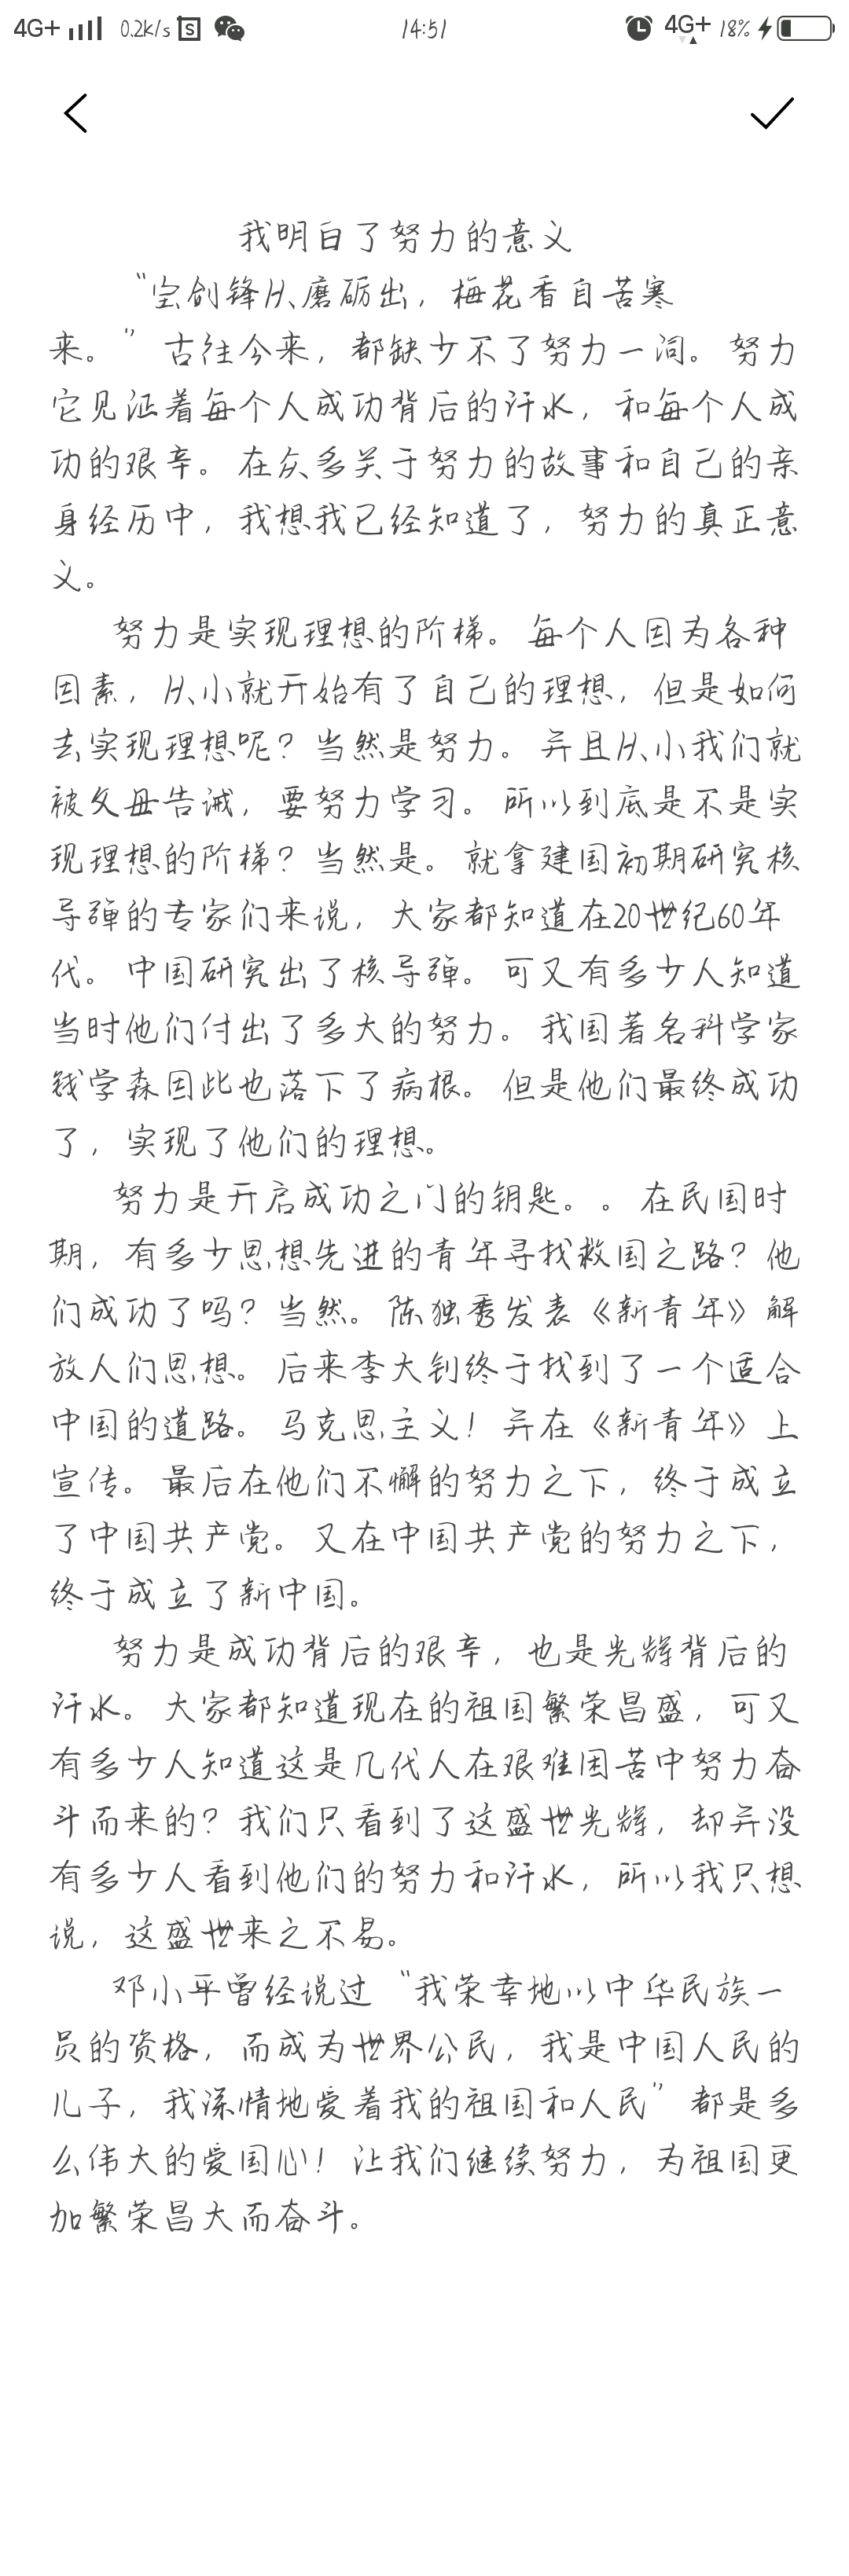 4G+ 0.2k/s 14:51 4G+ 18%
我明白了努力的意义
“宝剑锋从磨砺出，梅花香自苦寒
来。”古往今来，都缺少不了努力一词。努力
它见证着每个人成功背后的汗水，和每个人成
功的艰辛。在众多关于努力的故事和自己的亲
身经历中，我想我已经知道了，努力的真正意
义。
努力是实现理想的阶梯。每个人因为各种
因素，从小就开始有了自己的理想，但是如何
去实现理想呢？当然是努力。并且从小我们就
被父母告诫，要努力学习。所以到底是不是实
现理想的阶梯？当然是。就拿建国初期研究核
导弹的专家们来说，大家都知道在20世纪60年
代。中国研究出了核导弹。可又有多少人知道
当时他们付出了多大的努力。我国著名科学家
钱学森因此也落下了病根。但是他们最终成功
了，实现了他们的理想。
努力是开启成功之门的钥匙。。在民国时
期，有多少思想先进的青年寻找救国之路？他
们成功了吗？当然。陈独秀发表《新青年》解
放人们思想。后来李大钊终于找到了一个适合
中国的道路。马克思主义！并在《新青年》上
宣传。最后在他们不懈的努力之下，终于成立
了中国共产党。又在中国共产党的努力之下，
终于成立了新中国。
努力是成功背后的艰辛，也是光辉背后的
汗水。大家都知道现在的祖国繁荣昌盛，可又
有多少人知道这是几代人在艰难困苦中努力奋
斗而来的？我们只看到了这盛世光辉，却并没
有多少人看到他们的努力和汗水，所以我只想
说，这盛世来之不易。
邓小平曾经说过“我荣幸地以中华民族一
员的资格，而成为世界公民，我是中国人民的
儿子，我深情地爱着我的祖国和人民”都是多
么伟大的爱国心！让我们继续努力，为祖国更
加繁荣昌大而奋斗。